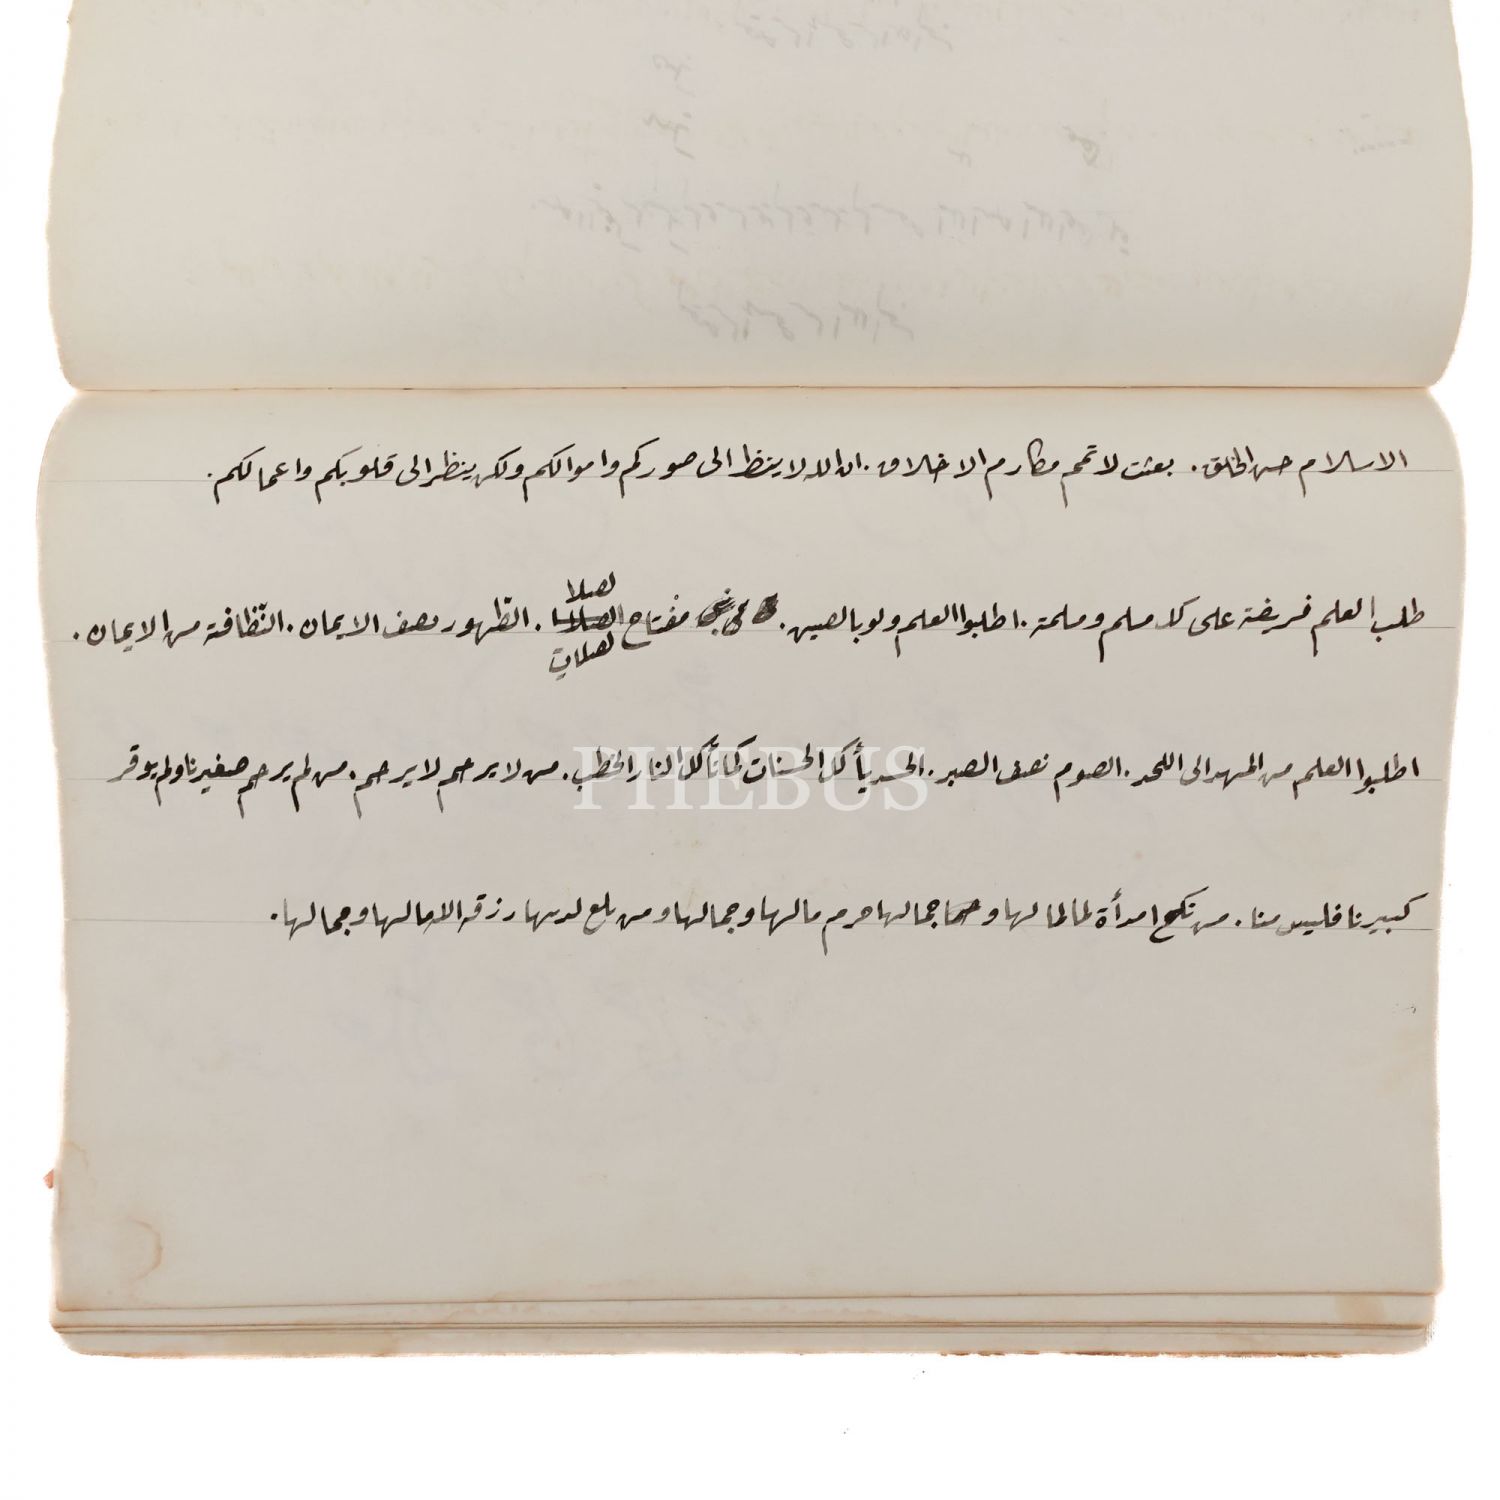 الاسلام حسن الخلق . بعثت لاتمم مكارم الاخلاق . ان الله لا ينظر الى صوركم واموالكم ولكن ينظر الى قلوبكم واعمالكم .
لصلا
طلب العلم فريضة على كل مسلم ومسلمة . اطلبوا العلم ولو بالصين . مفتاح . الطّهور نصف الايمان . النّظافة من الايمان .
اطلبوا العلم من المهد الى اللحد . الصوم نصف الصبر . الحسد يأكل الحسنات كما تأكل النار الحطب . من لا يرحم لا يرحم . من لم يرحم صغيرنا ولم يوقر
PHEBUS
كبيرنا فليس منا . من نكح امرأة لمالها و جمالها حرم مالها وجمالها ومن رزقه الله مالها وجمالها .